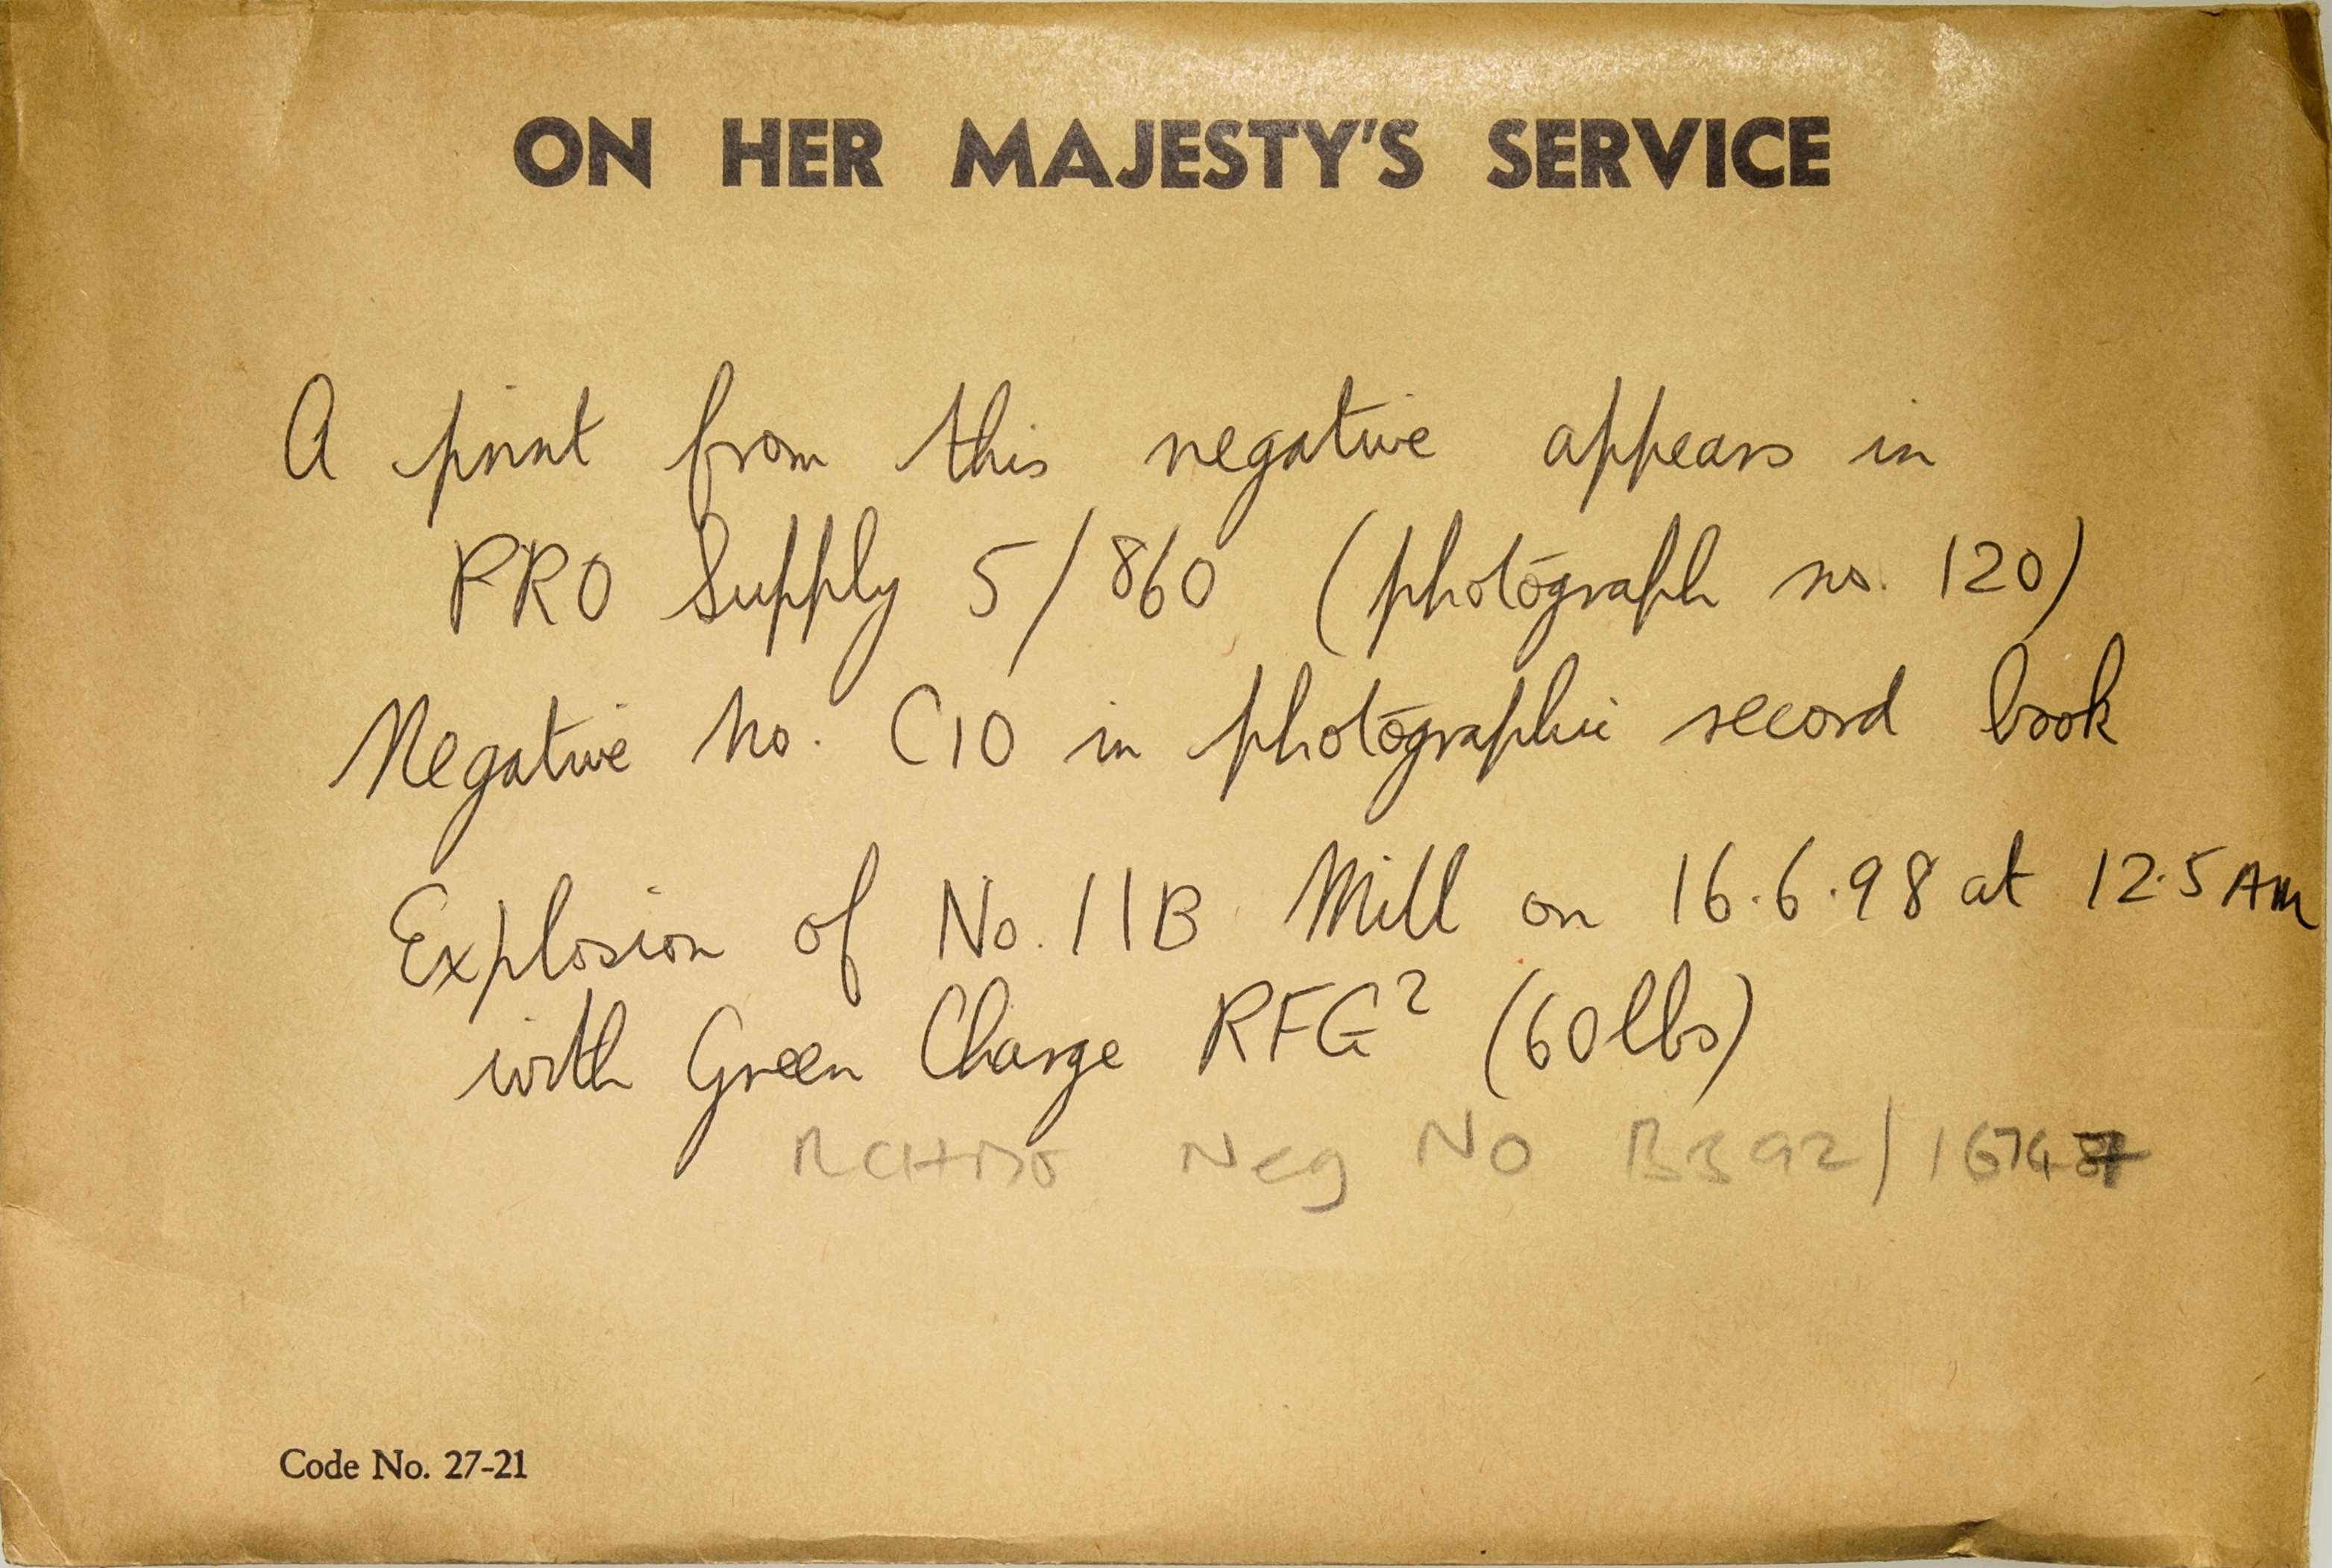 ON HER MAJESTY'S SERVICE
A print from this negative appears in
PRO Supply 5/860 (photograph no. 120)
Negative No. C10 in photographic record book
Explosion of No. 11B Mill on 16.6.98 at 12.5 AM
with Green Charge RFG² (60lbs)
Neg No B392/
Code No. 27-21